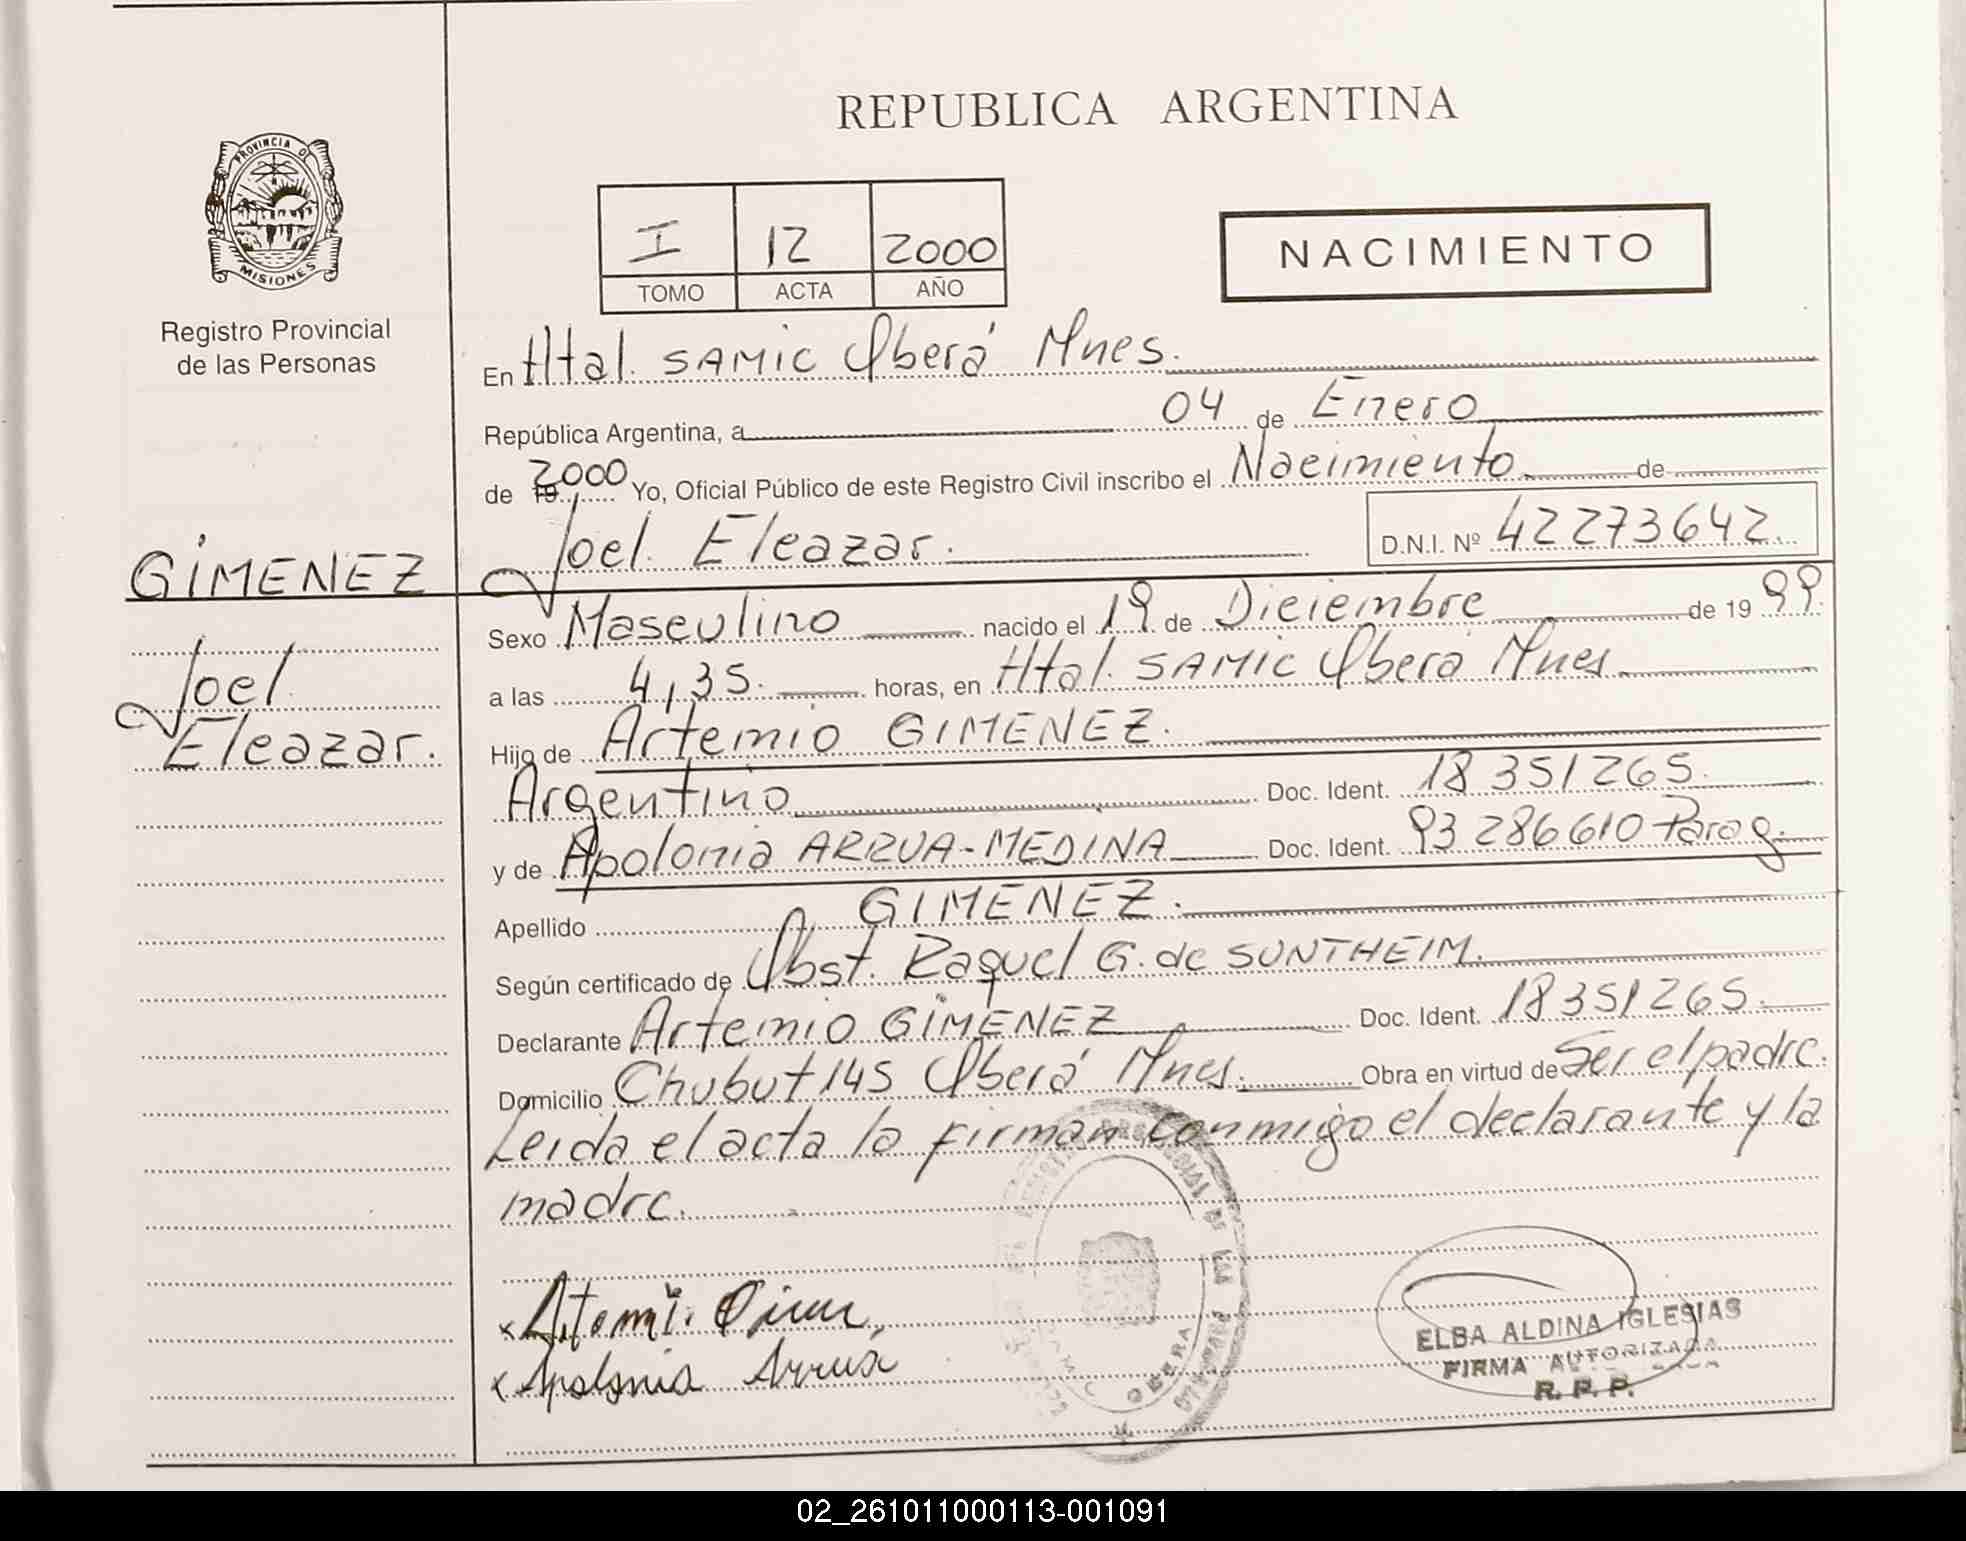 REPUBLICA ARGENTINA
PROVINCIA D
MISIONES
Registro Provincial
de las Personas
I 12 2000
TOMO ACTA AÑO
NACIMIENTO
En Htal. SAMIC Oberá Mnes.
República Argentina, a 04 de Enero
de 19 2000 Yo, Oficial Público de este Registro Civil inscribo el Nacimiento de
Joel Eleazar. D.N.I. Nº 42273642.
GIMENEZ
Joel
Eleazar.
Sexo Masculino nacido el 19 de Diciembre de 19 99.
a las 4,35. horas, en Htal. SAMIC Oberá Mnes.
Hijo de Artemio GIMENEZ.
Argentino Doc. Ident. 18 351265.
y de Apolonia ARRUA-MEDINA Doc. Ident. 93 286610 Parag.
Apellido GIMENEZ.
Según certificado de Obst. Raquel G. de SUNTHEIM.
Declarante Artemio GIMENEZ Doc. Ident. 18 351265.
Domicilio Chubut 145 Oberá Mnes. Obra en virtud de Ser el padre.
Leida el acta la firman conmigo el declarante y la
madre.
x Apolonia Arrua
OBERA
ELBA ALDINA IGLESIAS
FIRMA AUTORIZADA
R. P. P.
02_261011000113-001091